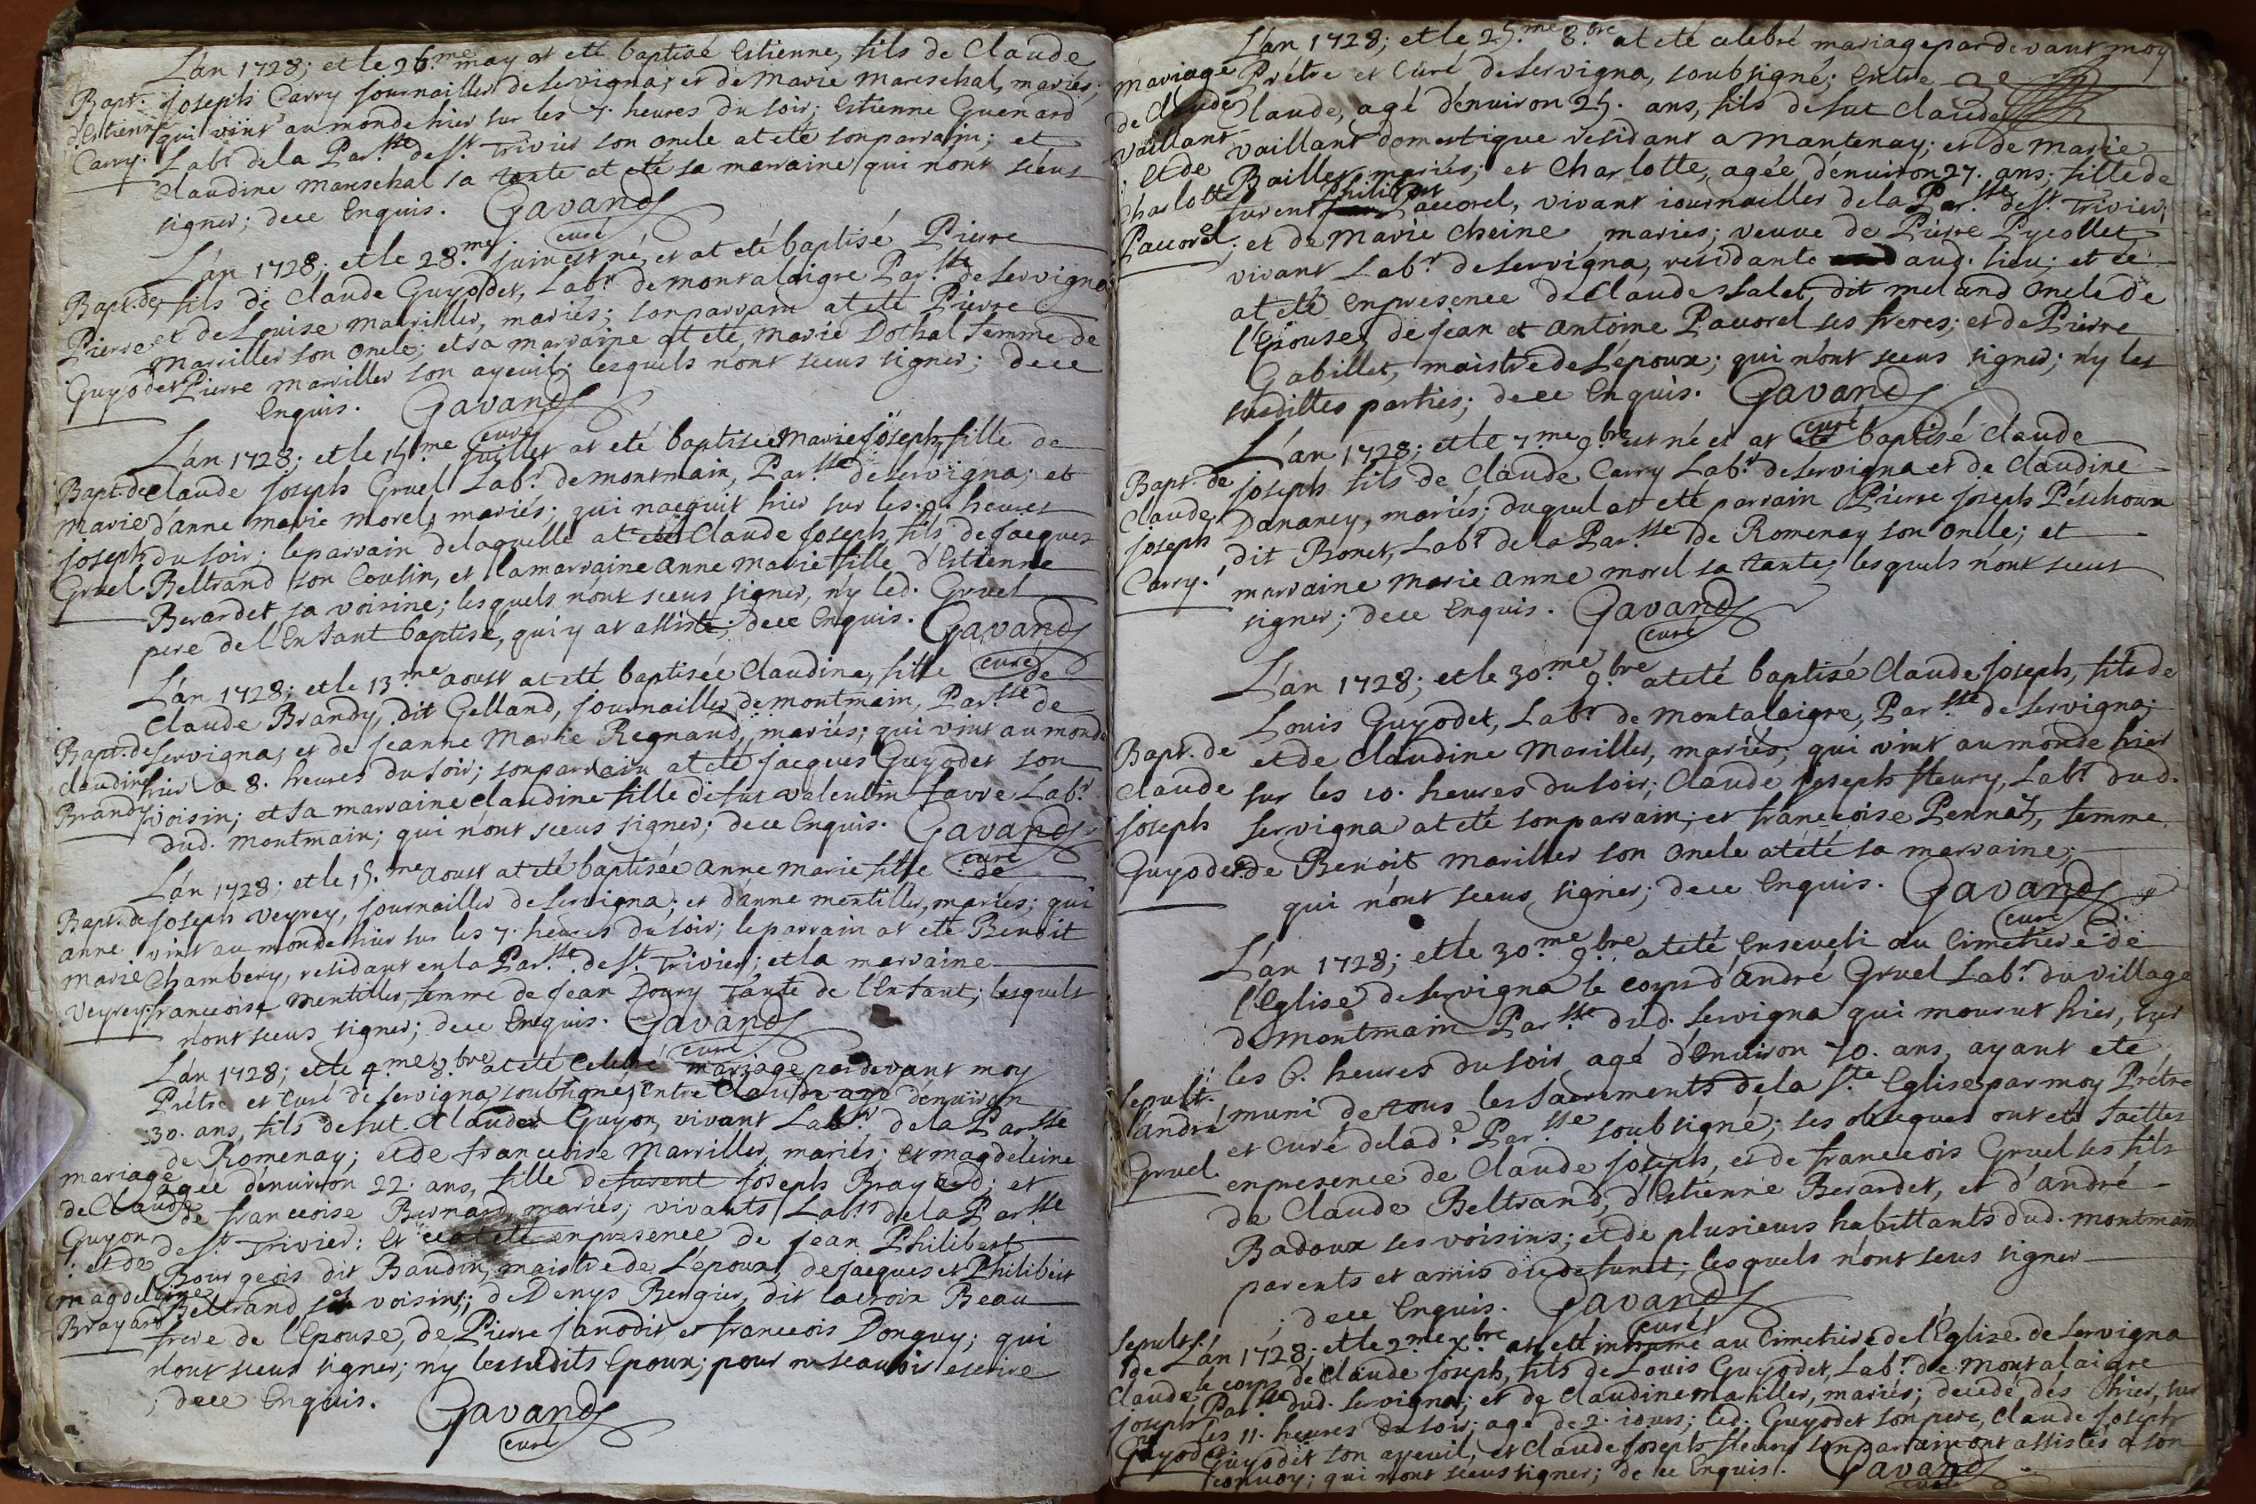 L'an 1728; et le 26.me may at eté baptisé Estienne, fils de Claude
Bapt. Joseph Carry journaillier de Servigna, et de Marie Mareschal, mariés;
d'Estienne qui vint au monde hier sur les 7. heures du soir; Estienne Guenard
Carry. Labr. de la Par.sse de St. Trivier son oncle at eté son parrain; et
Claudine Mareschal sa tante at eté sa marraine qui n'ont sceus
signer; de ce Enquis. Gavand
curé
L'an 1728; et le 28.me juin est né, et at eté baptisé Pierre
Bapt. de fils de Claude Guyodet, Labr. de montalaigre Par.sse de Servigna
Pierre et de Louise Marillier, mariés; son parrain at eté Pierre
Marillier son oncle; et sa marraine at eté, Marie Dothal femme de
Guyodet Pierre Marillier son ayeuil; lesquels n'ont sceus signer; de ce
Enquis. Gavand
curé
L'an 1728; et le 15.me juillet at eté baptisée Marie Joseph, fille de
Bapt. de Claude Joseph Gruel Labr. de montmain, Par.sse de Servigna; et
Marie d'anne marie morel, mariés; qui nacquit hier sur les 9. heures
Joseph du soir; le parrain de laquelle at eté Claude Joseph, fils de Jacques
Gruel Beltrand son Cousin, et la marraine anne marie fille d'Estienne
Berardet sa voisine; lesquels n'ont sceus signer, n'y led. Gruel
pere de l'Enfant baptisé, qui y at assisté; de ce Enquis. Gavand
curé
L'an 1728; et le 13.me aoust at eté baptisée Claudine, fille de
Claude Brandy, dit Gelland, journaillier de montmain, Par.sse de
Bapt. de Servigna, et de Jeanne Marie Regnaud, mariés; qui vint au monde
Claudine hier a 8. heures du soir; son parrain at eté Jacques Guyodet son
Brandy voisin; et sa marraine Claudine fille de fut valentin favre Labr.
dud. montmain; qui n'ont sceus signer; de ce Enquis. Gavand
curé
L'an 1728; et le 15.me aoust at eté baptisée anne marie fille de
Bapt. de Joseph Veyrey, journaillier de Servigna; et d'anne mentillier, mariés; qui
anne vint au monde hier sur les 7. heures du soir; le parrain at eté Benoit
marie Chambery, residant en la Par.sse de St. Trivier; et la marraine
Veyrey. francoise Mentillier, femme de Jean Doury tante de l'Enfant; lesquels
n'ont sceus signer; de ce Enquis. Gavand
curé
L'an 1728; et le 4.me 8.bre at eté Celebré mariage par devant moy
Prêtre et Curé de Servigna soubsigné; entre Claude agé d'enuiron
30. ans, fils de fut Claude Guyon, vivant Labr. de la Par.sse
de Romenay; et de francoise Marillier, mariés; et magdeleine
mariage agée d'enuiron 22. ans, fille de furent Joseph Brayard; et
de Claude de francoise Bernard, mariés; vivants Labrs. de la Par.sse
Guyon de St. Trivier: Et ce at eté en presence de Jean Philibert
et de Bourgeois dit Baudin, maistre de L'epoux; de Jacques et Philibert
magdeleine Beltrand ses voisins; de Denys Bergier, dit lacroix Beau
Brayard frere de l'Epouse, de Pierre Janodit et francois Donguy; qui
n'ont sceus signer; n'y les sudits Epoux; pour ne scauoir escrire
; de ce Enquis. Gavand
curé
L'an 1728; et le 25.me 8.bre at eté celebré mariage par devant moy
mariage Prêtre et Curé de Servigna, soubsigné; Entre
de Claude Claude, agé d'enuiron 25. ans, fils de fut Claude
Vaillant vaillant domestique residant a Mantenay; et de Marie
et de Baillet, mariés; et Charlotte, agée, d'enuiron 27. ans; fille de
Charlotte furent Philibert Paccorel, vivant journaillier de la Par.sse de St. Trivier;
Paccorel. et de Marie Cheine mariés; veuve de Pierre Pycollet
vivant Labr. de Servigna, residante aud. lieu; et ce
at eté en presence de Claude Salet, dit meland oncle de
l'Epouse, de Jean et Antoine Paccorel ses freres; et de Pierre
Gabillet, maistre de L'epoux; qui n'ont sceus signer; n'y les
susdittes parties; de ce Enquis. Gavand
curé
L'an 1728; et le 7.me 9.bre est né et at eté baptisé Claude
Bapt. de Joseph fils de Claude Carry Labr. de Servigna et de Claudine
Claude Danancy, mariés; duquel at eté parrain Pierre Joseph Péschoux
Joseph dit Bonet, Labr. de la Par.sse de Romenay son oncle; et
Carry. marraine Marie anne morel sa tante, lesquels n'ont sceus
signer; de ce Enquis. Gavand
curé
L'an 1728; et le 30.me 9.bre at eté baptisé Claude Joseph, fils de
Louis Guyodet, Labr. de Montalaigre, Par.sse de Servigna;
Bapt. de et de Claudine Marillier, mariés; qui vint au monde hier
Claude sur les 10. heures du soir; Claude Joseph fleury, Labr. dud.
Joseph Servigna at eté son parrain; et francoise Pennat, femme
Guyodet. de Benoit Marillier son oncle at eté sa marraine;
qui n'ont sceus signer; de ce Enquis. Gavand
curé
L'an 1728; et le 30.me 9.bre at eté Enseveli au Cimetiere de
l'Eglise de Servigna le corps d'André Gruel Labr. du village
de montmain Par.sse dud. Servigna qui mourut hier, sur
les 6. heures du soir agé d'Enuiron 70. ans, ayant eté
Sepult. muni de tous les Sacrements de la S.te Eglise par moy Prêtre
d'andré et Curé de lad.e Par.sse soubsigné; ses obseques ont eté faittes
Gruel en presence de Claude Joseph, et de francois Gruel ses fils
de Claude Beltrand, d'Estienne Berardet, et d'andré
Badoux ses voisins; et de plusieurs habittants dud. montmain
parents et amis du defunct; lesquels n'ont sceus signer
; de ce Enquis. Gavand
curé
Sepult. L'an 1728; et le 2.me X.bre at eté inhumé au Cimetiere de l'Eglise de Servigna
de le corps de Claude Joseph, fils de Louis Guyodet, Labr. de Montalaigre
Claude Par.sse dud. Servigna; et de Claudine Marillier, mariés; decedé dés hier, sur
Joseph les 11. heures du soir; agé de 2. iours; led. Guyodet son pere, Claude Joseph
Guyodet Guyodet son ayeuil, et Claude Joseph fleury son parrain ont assistés a son
convoy; qui n'ont sceus signer; de ce Enquis. Gavand
curé